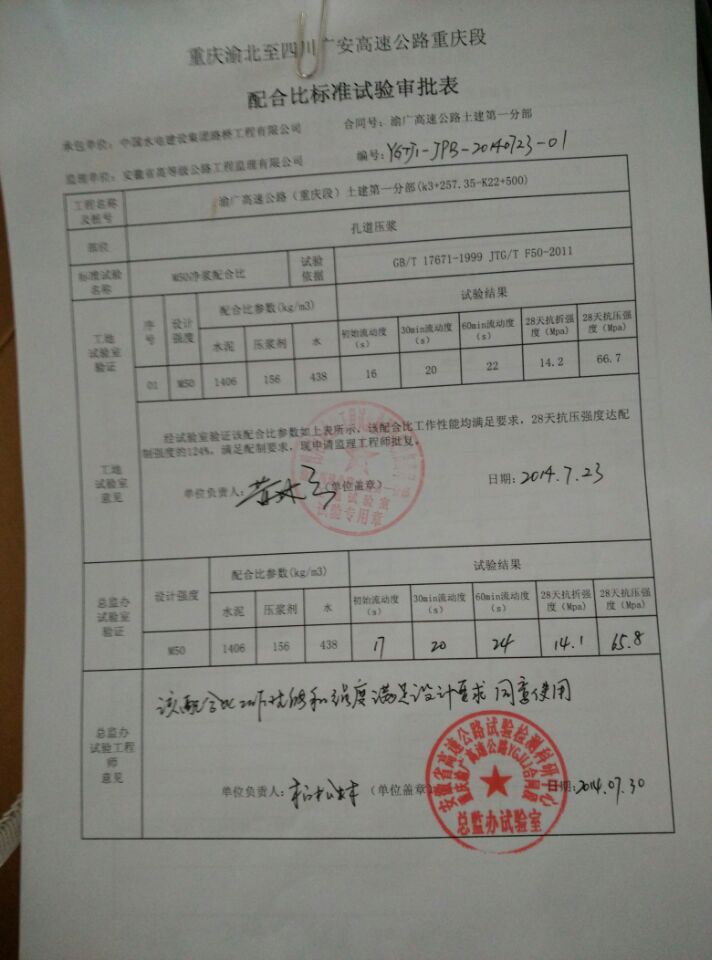 重庆渝北至四川广安高速公路重庆段
配合比标准试验审批表
承包单位：中国水电建设集团路桥工程有限公司 合同号：渝广高速公路土建第一分部
监理单位：安徽省高等级公路工程监理有限公司 编号：YGTJ1-JPB-20140723-01
工程名称及桩号 渝广高速公路（重庆段）土建第一分部(k3+257.35-K22+500)
部位 孔道压浆
标准试验名称 M50净浆配合比 试验依据 GB/T 17671-1999 JTG/T F50-2011
工地试验室验证 序号 设计强度 配合比参数(kg/m3) 试验结果
水泥 压浆剂 水 初始流动度(s) 30min流动度(s) 60min流动度(s) 28天抗折强度(Mpa) 28天抗压强度(Mpa)
01 M50 1406 156 438 16 20 22 14.2 66.7
工地试验室意见
经试验室验证该配合比参数如上表所示，该配合比工作性能均满足要求，28天抗压强度达配
制强度的124%，满足配制要求，现申请监理工程师批复。
单位负责人： （单位盖章） 日期：2014.7.23
试验室
试验专用章
总监办试验室验证 设计强度 配合比参数(kg/m3) 试验结果
水泥 压浆剂 水 初始流动度(s) 30min流动度(s) 60min流动度(s) 28天抗折强度(Mpa) 28天抗压强度(Mpa)
M50 1406 156 438 17 20 24 14.1 65.8
总监办试验工程师意见
该配合比工作性能和强度满足设计要求 同意使用
单位负责人： （单位盖章） 日期：2014.07.30
安徽省高速公路试验检测科研中心
重庆渝广高速公路YGJL1合同段
总监办试验室